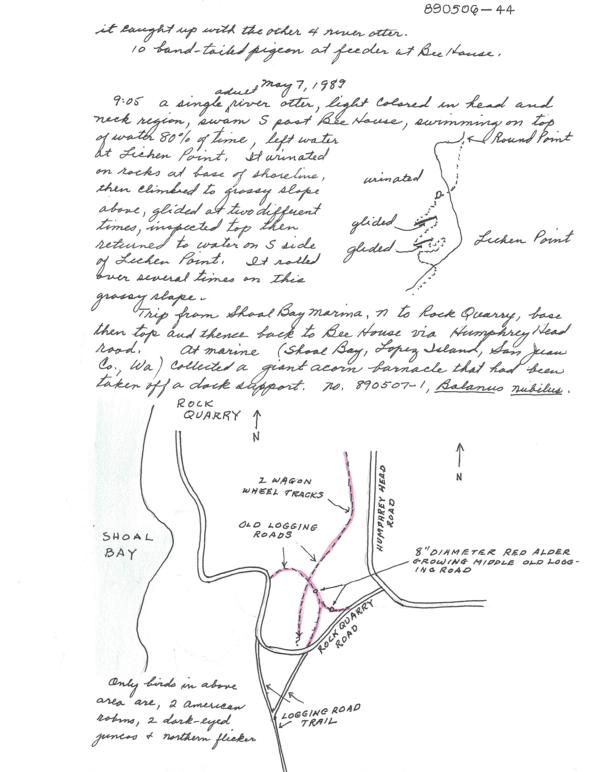 890506-44
it caught up with the other 4 river otter.
10 band-tailed pigeon at feeder at Bee House.
May 7, 1989
adult
9:05 a single river otter, light colored in head and
neck region, swam S past Bee House, swimming on top
of water 80% of time, left water
at Lichen Point. It urinated
on rocks at base of shoreline,
then climbed to grassy slope
above, glided at two different
times, inspected top then
returned to water on S side
of Lichen Point. It rolled
over several times on this
grassy slope.
Round Point
urinated
glided
glided
Lichen Point
Trip from Shoal Bay Marina, N to Rock Quarry, base
then top and thence back to Bee House via Humphrey Head
road. At marine (Shoal Bay, Lopez Island, San Juan
Co., Wa) collected a giant acorn barnacle that had been
taken off a dock support. no. 890507-1, Balanus nubilus.
ROCK
QUARRY
N
N
2 WAGON
WHEEL TRACKS
HUMPHREY HEAD
ROAD
OLD LOGGING
ROADS
SHOAL
BAY
8" DIAMETER RED ALDER
GROWING MIDDLE OLD LOGG-
ING ROAD
?
ROCK QUARRY
ROAD
LOGGING ROAD
TRAIL
Only birds in above
area are, 2 american
robins, 2 dark-eyed
juncos & northern flicker